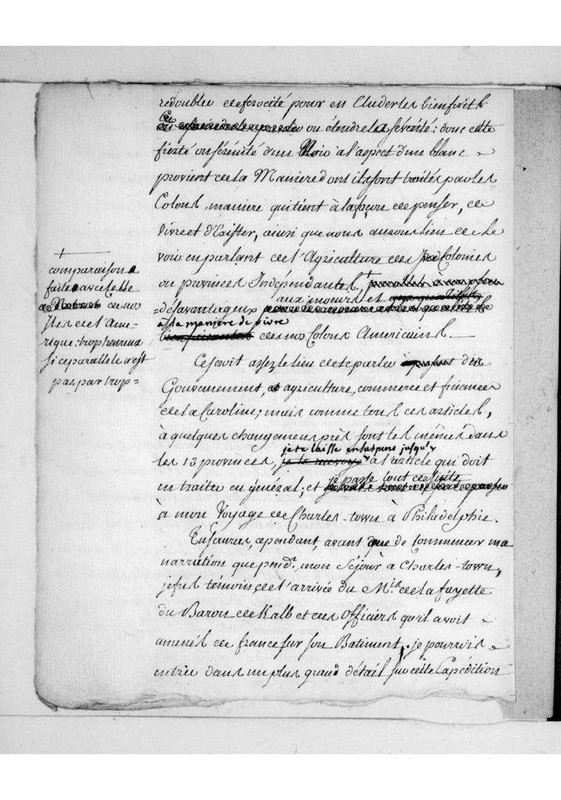 redoubler de ferocité pour en Eluder les bienfaits
ou étendre la sévérité: donc cette
fierté ou sérénité d'un Noir a l'aspect d'un blanc
provient de la Maniere dont ils sont traités par les
Colons, maniere qui tient à la façon de penser, de
vivre et d'Exister, ainsi que nous aurons lieu de le
voir en parlant de l'Agriculture des Colonies
ou provinces Indépendantes, +
+
comparaison
faite avec celle
de nos
Isles de l'Amé-
rique: trop heureux
si ce parallele n'est
pas par trop =
= désavantageux aux moeurs et
a la maniere de vivre
de nos Colons Americains.
Ce seroit assez le lieu de parler du
Gouvernement, agriculture, commerce et finances
de la Caroline; mais comme tous ces articles,
à quelques changemens près sont les mêmes dans
les 13 provinces, je te laisse en suspens jusqu'
à l'article qui doit
en traiter en général; et je passe tout de suite
à mon Voyage de Charles-town à Philadelphie.
Tu sauras, cependant, avant que de commencer ma
narration que pend.t mon Séjour à Charles-town,
je fus témoin de l'arrivée du M.is de la fayette
du Baron de Kalb et des Officiers qu'il avoit
amenés de france sur son Batiment, je pourrois
entrer dans un plus grand détail sur cette Expedition